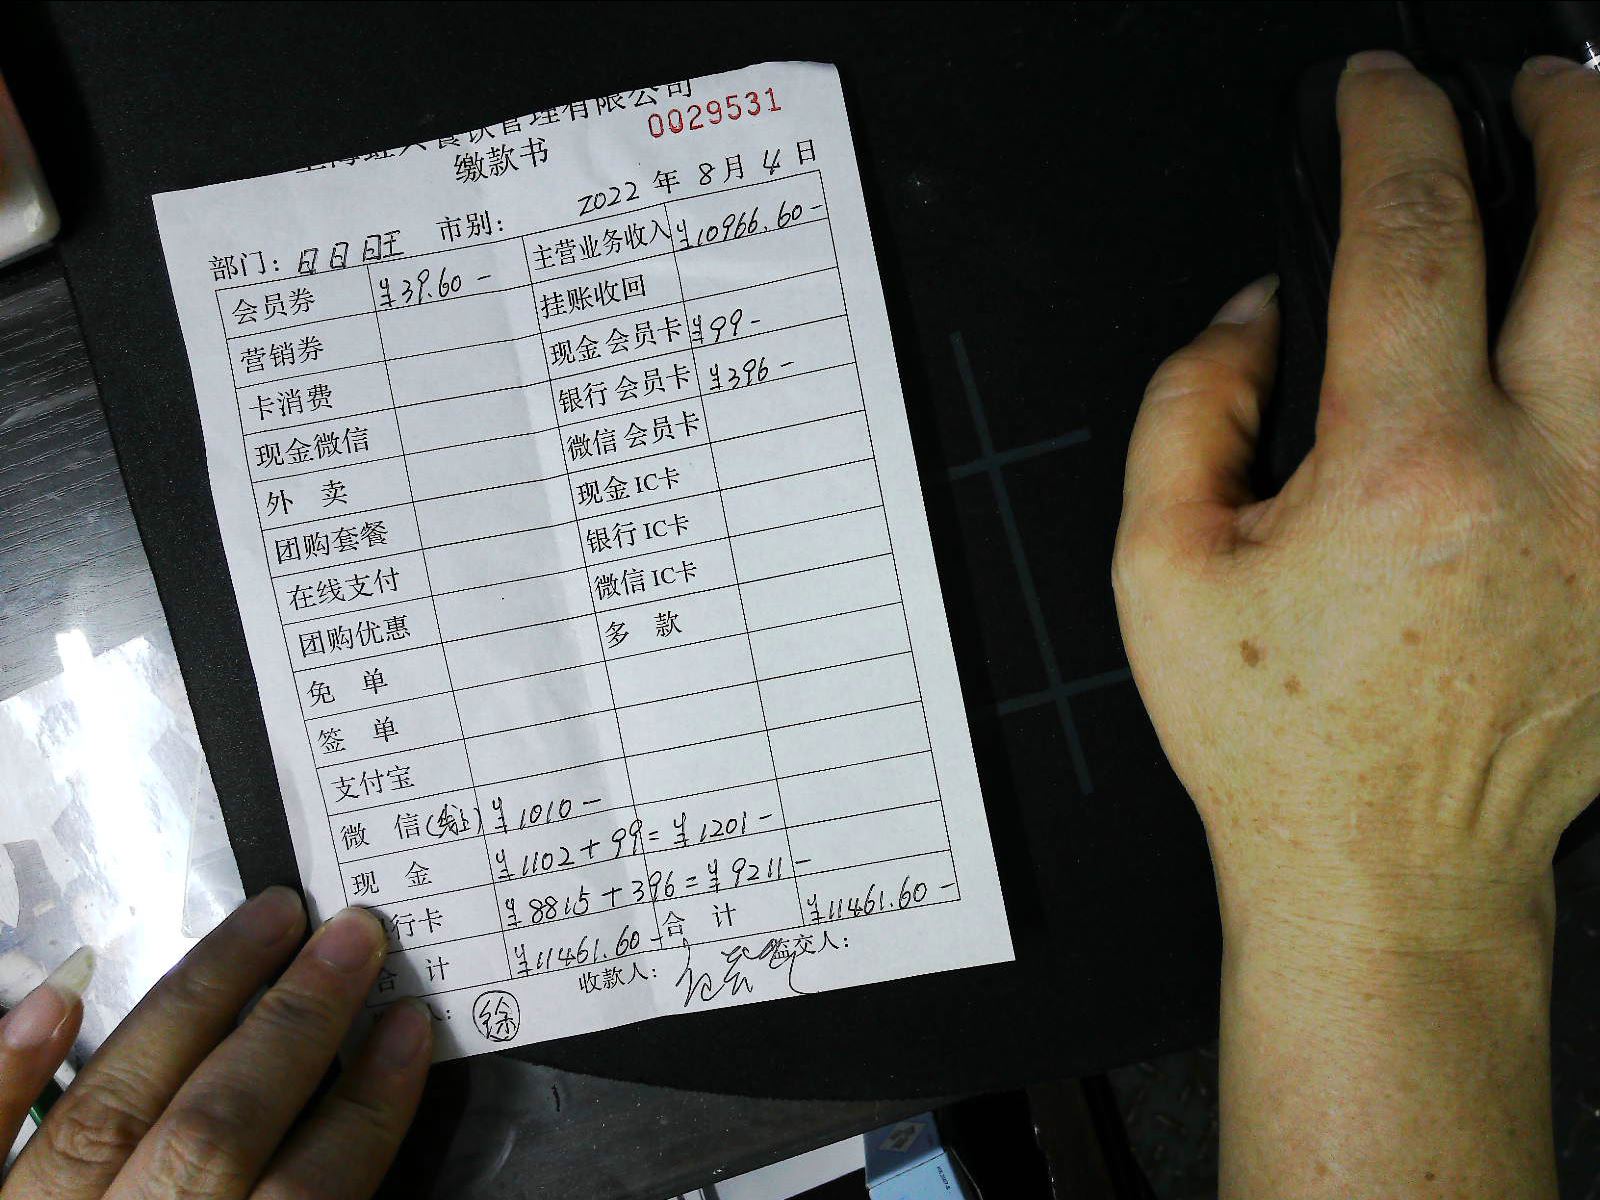 餐饮管理有限公司
0029531
缴款书
2022 年 8 月 4 日
部门: 日日旺 市别:
会员券 ¥39.60- 主营业务收入 ¥10966.60-
营销券 挂账收回
卡消费 现金会员卡 ¥99-
现金微信 银行会员卡 ¥396-
外 卖 微信会员卡
团购套餐 现金IC卡
在线支付 银行IC卡
团购优惠 微信IC卡
免 单 多 款
签 单
支付宝
微 信(线上) ¥1010-
现 金 ¥1102+99=¥1201-
行卡 ¥8815+396=¥9211-
合 计 ¥11461.60- 合 计 ¥11461.60-
人: 徐 收款人: 监交人: